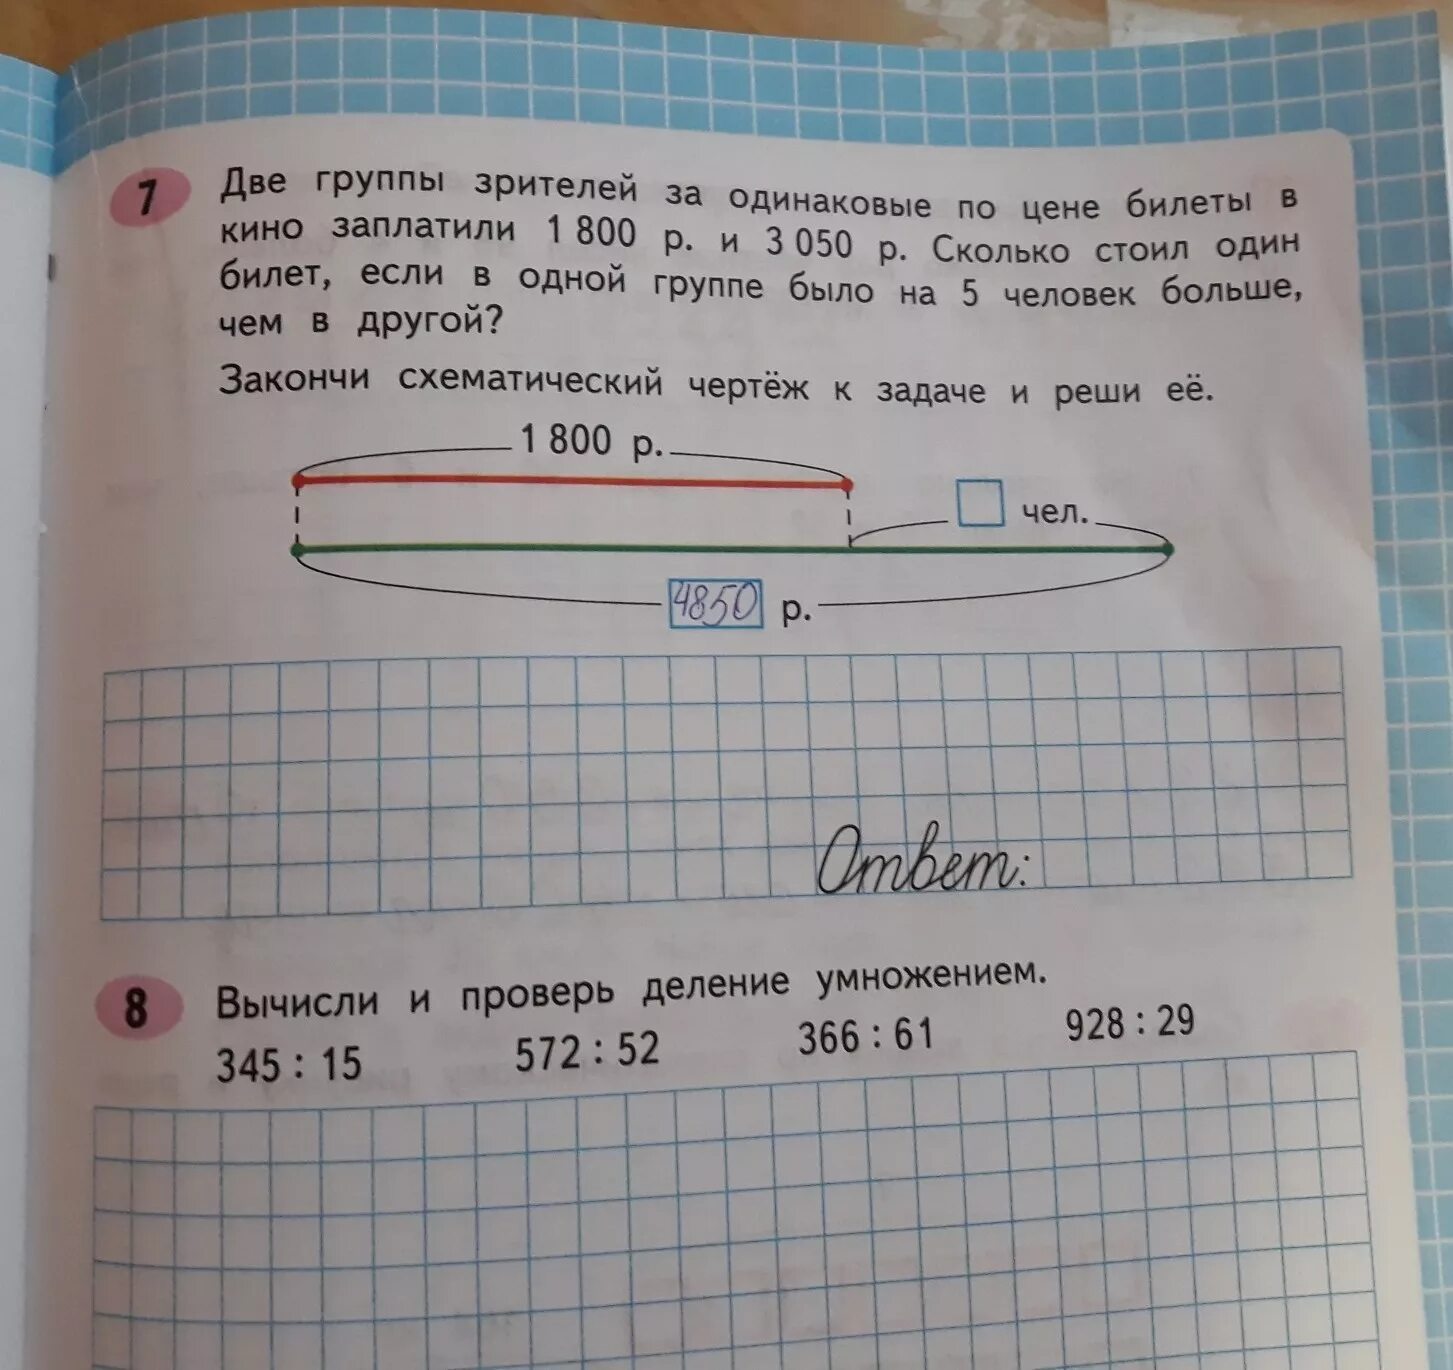 7 Две группы зрителей за одинаковые по цене билеты в
кино заплатили 1 800 р. и 3 050 р. Сколько стоил один
билет, если в одной группе было на 5 человек больше,
чем в другой?
Закончи схематический чертёж к задаче и реши её.
1 800 р.
чел.
4850 р.
Ответ:
8 Вычисли и проверь деление умножением.
345 : 15 572 : 52 366 : 61 928 : 29